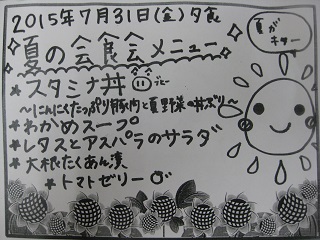 2015年7月31日(金)夕食
夏が
キター
夏の会食会メニュー
*スタミナ丼 ブヒー
~にんにくたっぷり豚肉と夏野菜の丼ぶり~
*わかめスープ
*レタスとアスパラのサラダ
*大根たくあん漬
*トマトゼリー